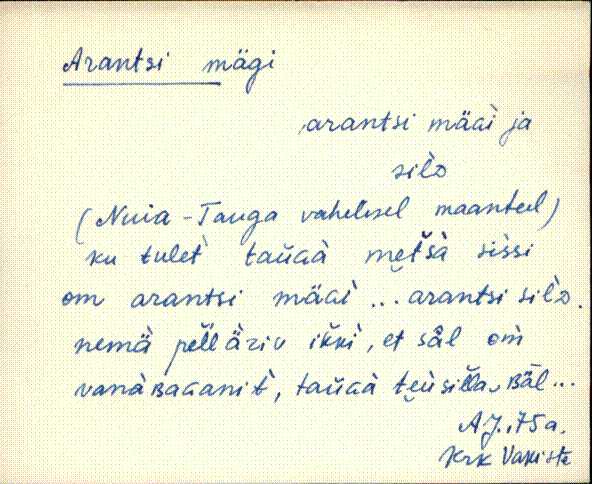 Arantsi mägi
arantsi mäGì ja
silò
(Nuia-Tauga vahelisel maanteel)
ku tulèt tauGà metsà sissi
om arantsi mäGì ... arantsi silò.
nemä pelläziv ikkì, et sääl om
vanàBaGanit, tauGà
A.J., 75 a.
Krk Vanistè